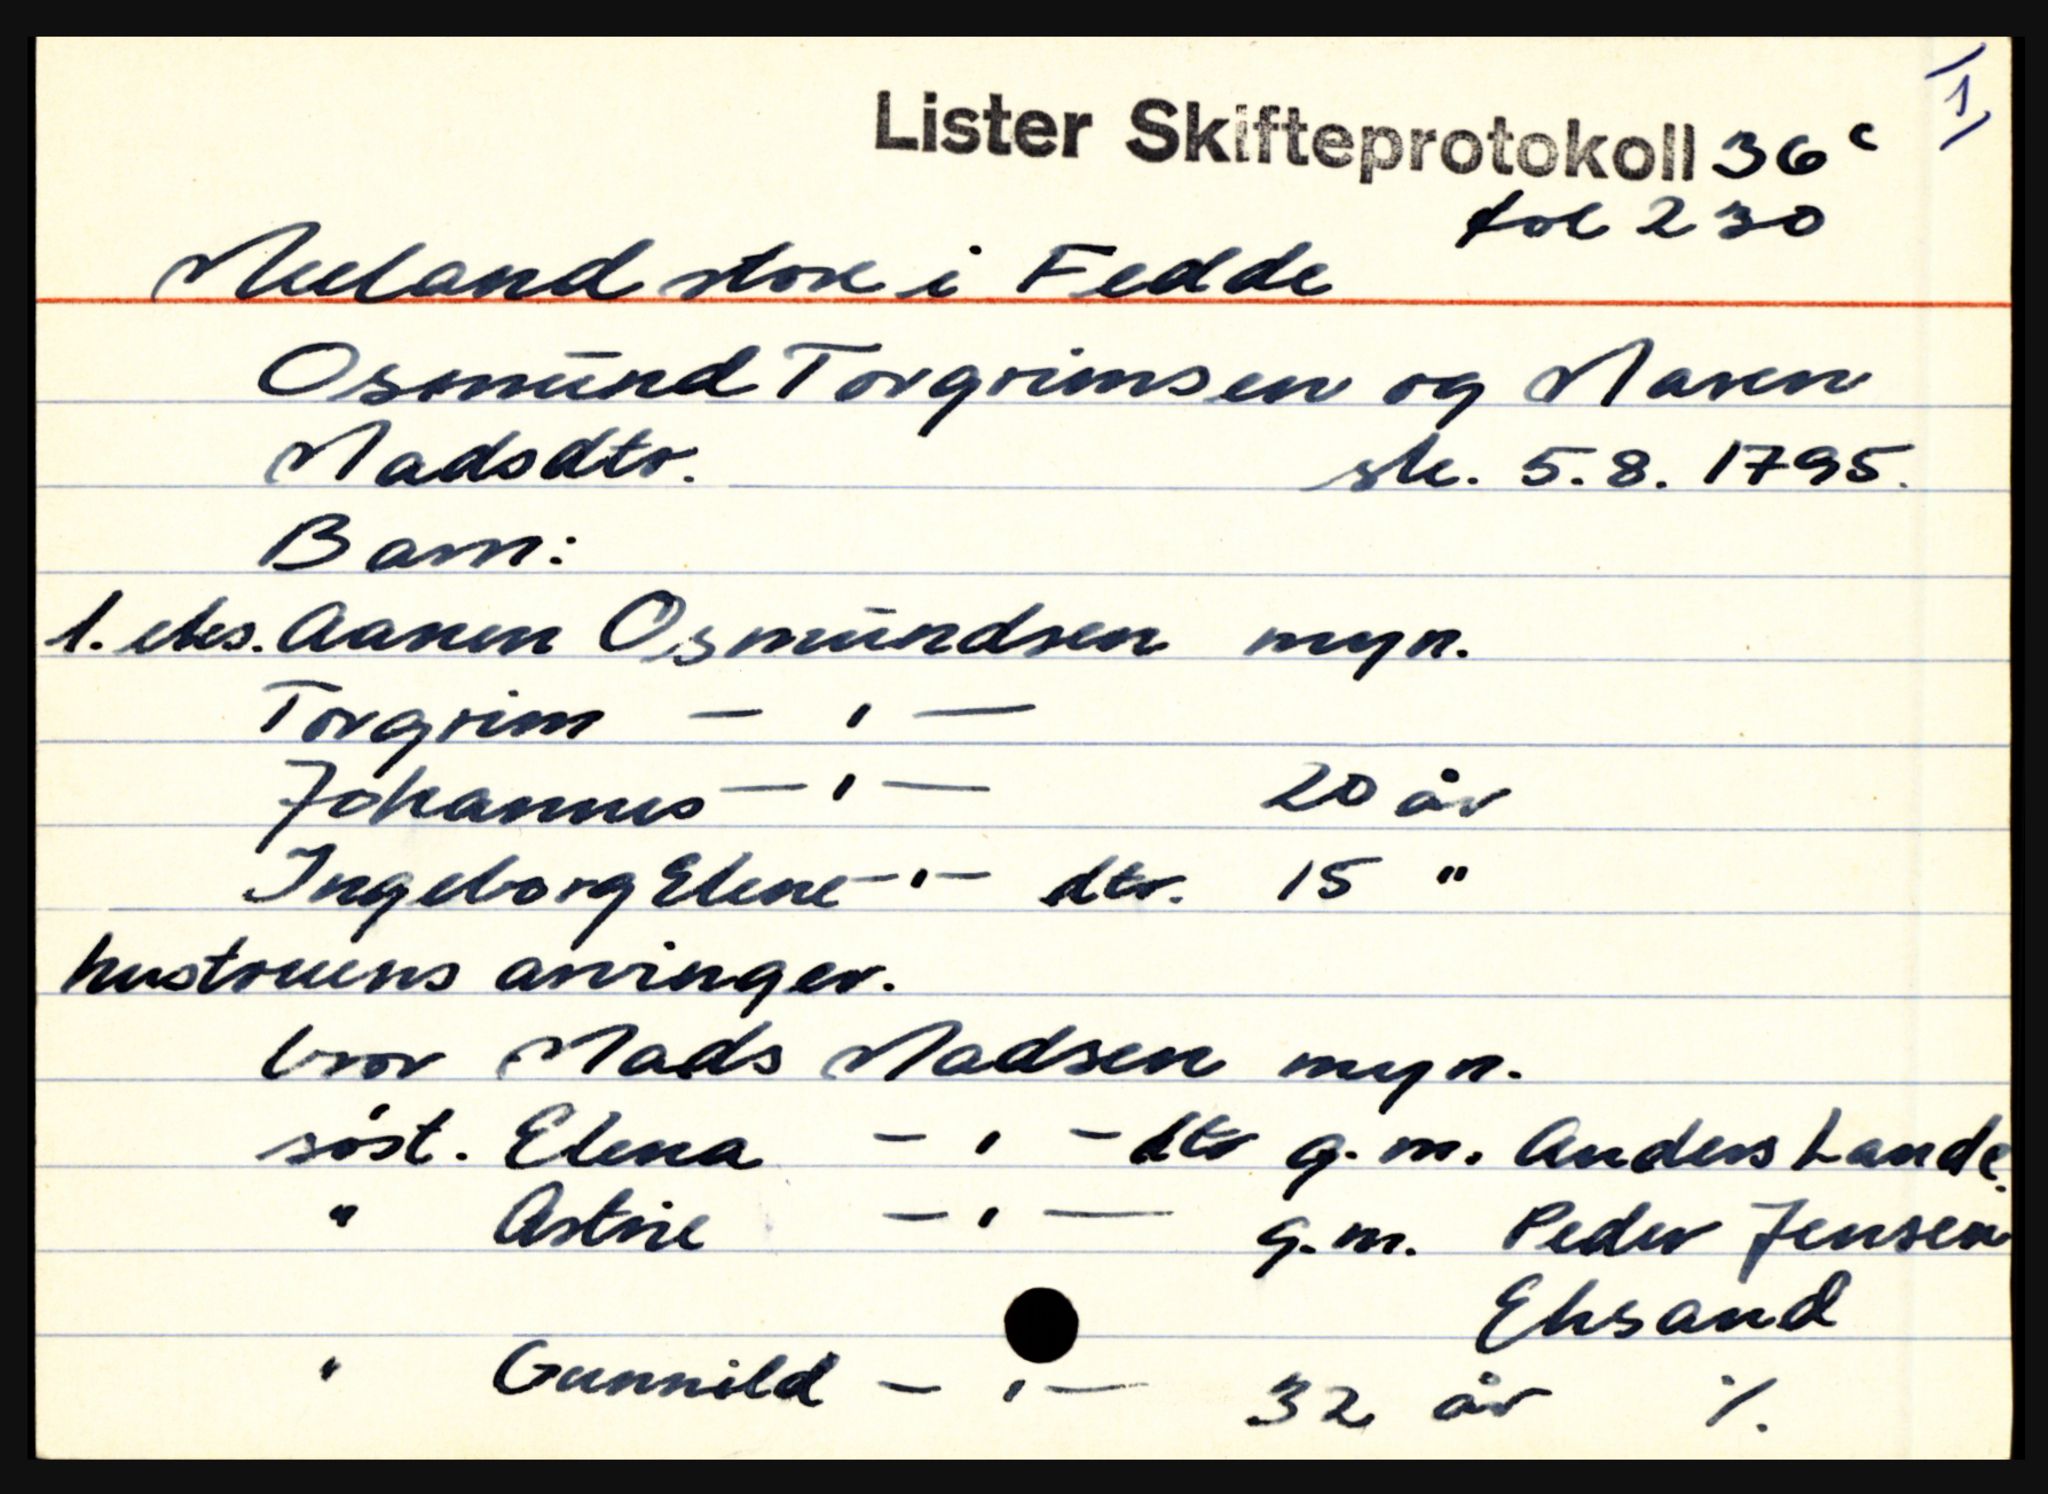 1)
Lister Skifteprotokoll 36c
fol 230
Meeland store i Fedde
Osmund Torgrimsen og Maren
Madsdtr. sk. 5.8. 1795.
Barn:
1. ekts. Aanen Osmundsen myn.
Torgrim — " —
Johannes — " — 20 år
Ingeborg Elene — " — dtr. 15 "
hustruens arvinger.
bror Mads Madsen myn.
søst. Elena — " — dtr g.m. Anders Lande.
" Astrie — " — g.m. Peder Jensen
Eksand
" Gunnild — " — 32 år ./.